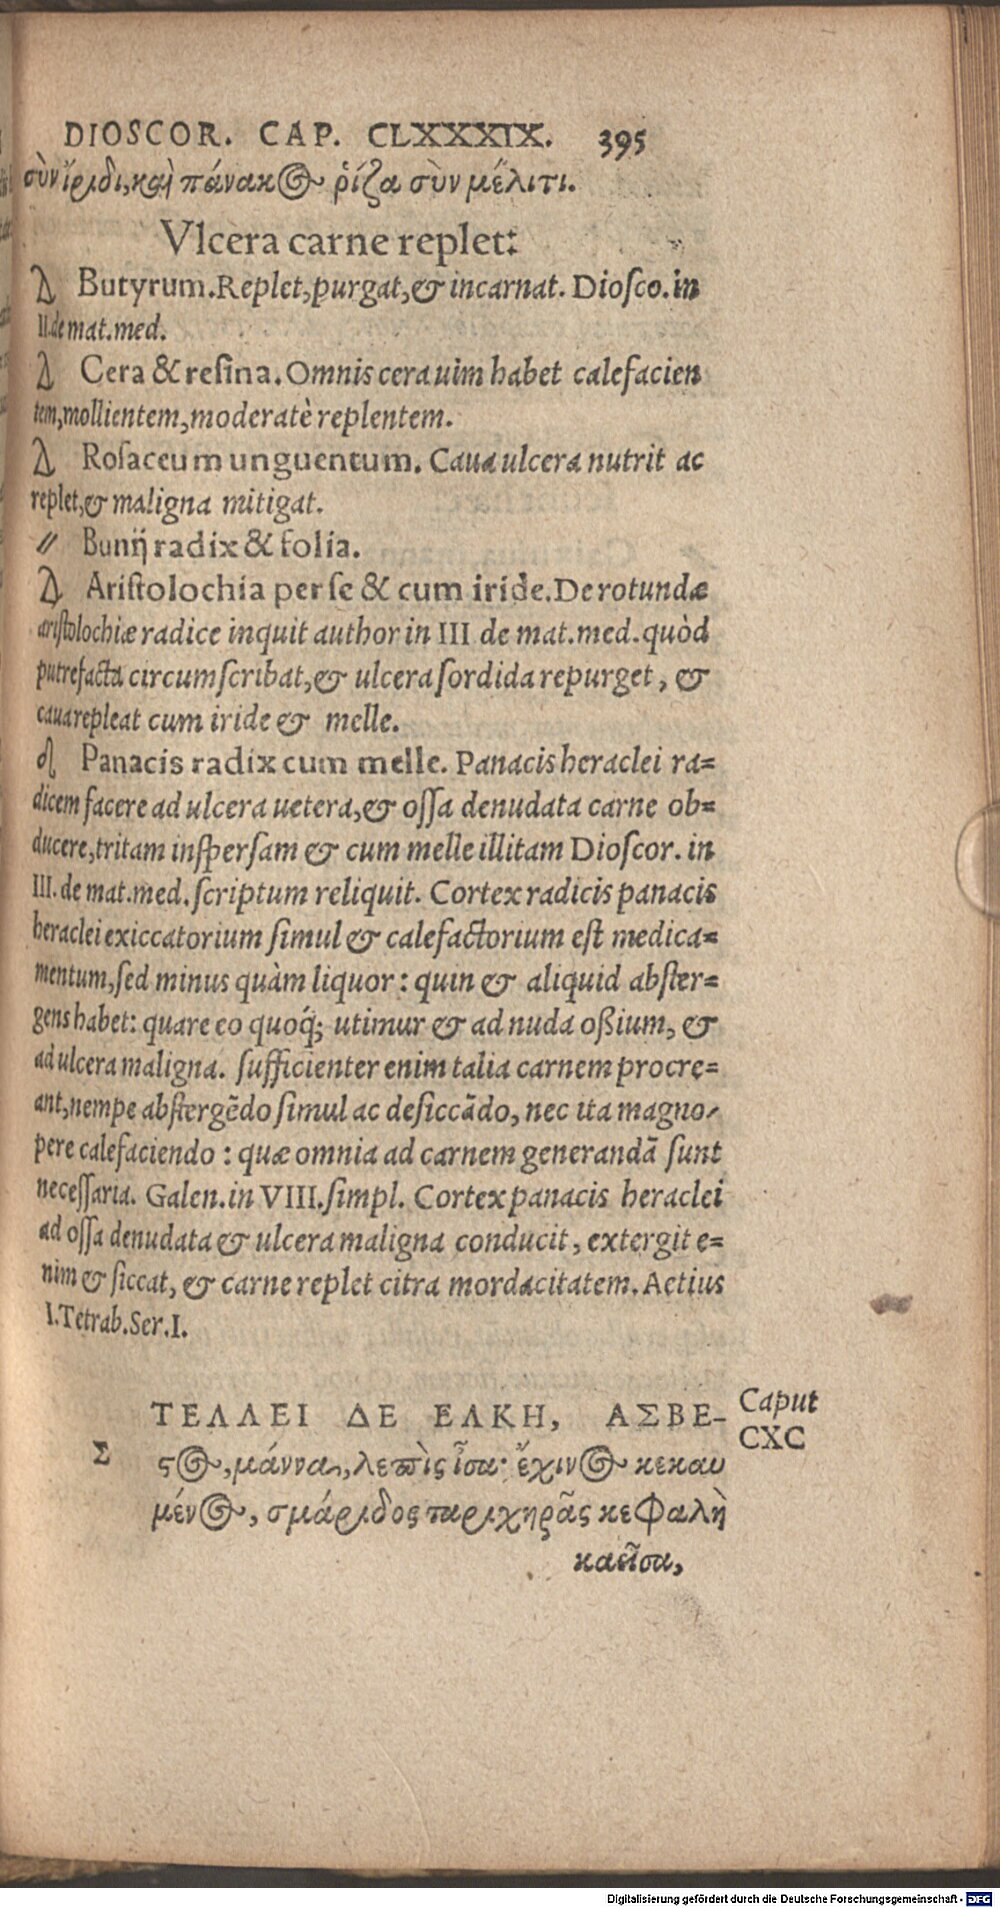 DIOSCOR. CAP. CLXXXIX. 395
σὺν ἴριδι, καὶ πάνακος ῥίζα σὺν μέλιτι.
Vlcera carne replet:
Butyrum. Replet, purgat, & incarnat. Diosco. in
II. de mat. med.
Cera & resina. Omnis cera uim habet calefacien
tem, mollientem, moderatè replentem.
Rosaceum unguentum. Caua ulcera nutrit ac
replet, & maligna mitigat.
〃 Bunij radix & folia.
Aristolochia per se & cum iride. De rotundæ
aristolochiæ radice inquit author in III de mat. med. quòd
putrefacta circumscribat, & ulcera sordida repurget, &
caua repleat cum iride & melle.
Panacis radix cum melle. Panacis heraclei ra=
dicem facere ad ulcera uetera, & ossa denudata carne ob=
ducere, tritam inspersam & cum melle illitam Dioscor. in
III. de mat. med. scriptum reliquit. Cortex radicis panacis
heraclei exiccatorium simul & calefactorium est medica=
mentum, sed minus quàm liquor: quin & aliquid abster=
gens habet: quare eo quoq́; utimur & ad nuda oßium, &
ad ulcera maligna. sufficienter enim talia carnem procre=
ant, nempe abstergēdo simul ac desiccādo, nec ita magno/
pere calefaciendo: quæ omnia ad carnem generandã sunt
necessaria. Galen. in VIII. simpl. Cortex panacis heraclei
ad ossa denudata & ulcera maligna conducit, extergit e=
nim & siccat, & carne replet citra mordacitatem. Aetius
I. Tetrab. Ser. I.
ΤΕΛΛΕΙ ΔΕ ΕΛΚΗ, ΑΣΒΕ- Caput
CXC
Σ ςος, μάννα, λεπὶς ἴσα· ἔχινος κεκαυ
μένος, σμάριδος ταριχηρᾶς κεφαλὴ
καεῖσα,
Digitalisierung gefördert durch die Deutsche Forschungsgemeinschaft - DFG